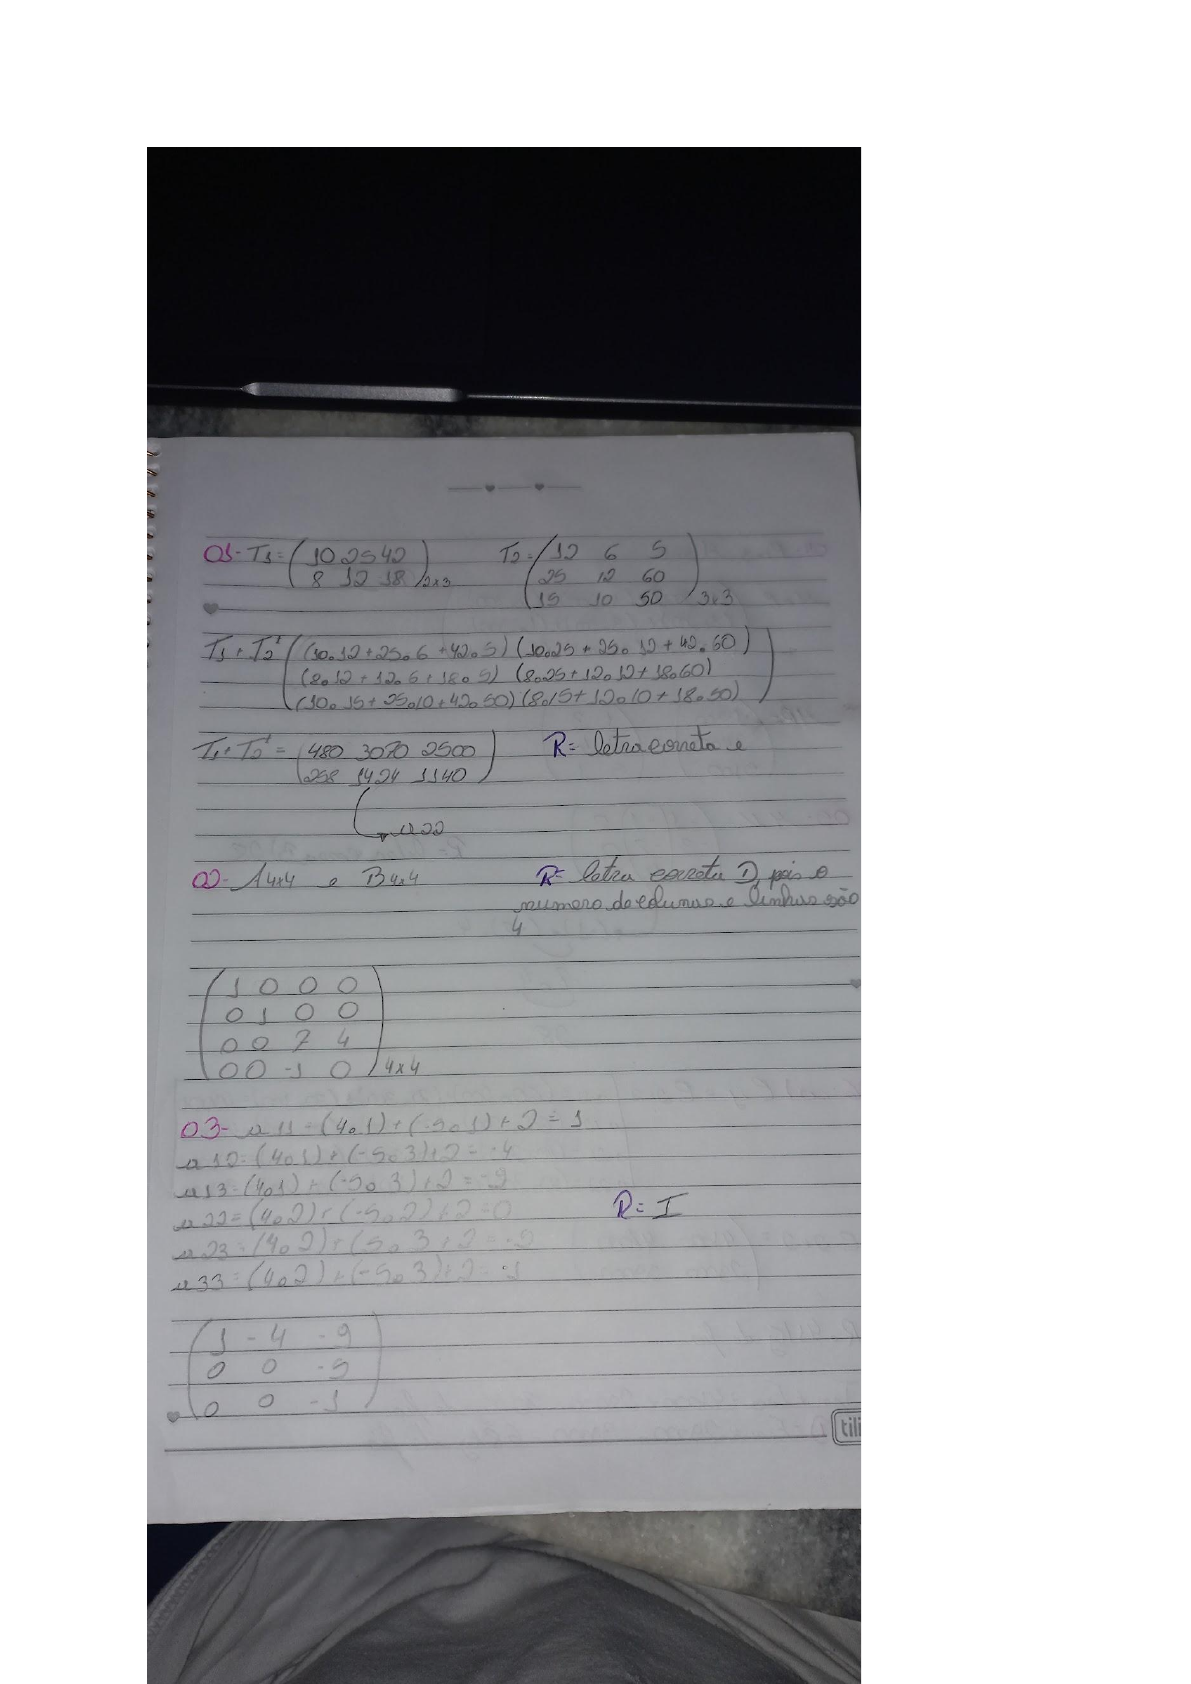 01- T1 = (10 25 42) T2 = (12 6 5)
(8 12 18) 2x3 (25 12 60)
(15 10 50) 3x3
T1 . T2t ((10.12+25.6+42.5) (10.25+25.12+42.60)
(8.12+12.6+18.5) (8.25+12.12+18.60)
(10.15+25.10+42.50) (8.15+12.10+18.50))
T1 . T2t = (480 3070 2500) R= letra correta e
(258 1424 1140)
a22
02- A4x4 e B4x4 R= letra correta D, pois o
numero de colunas e linhas são
4
(1 0 0 0)
0 1 0 0
0 0 7 4
0 0 -1 0) 4x4
03- a11=(4.1)+(-5.1)+2=1
a12=(4.1)+(-5.3)+2=-4
a13=(4.1)+(-5.3)+2=-9
a22=(4.2)+(-5.2)+2=0 R= I
a23=(4.2)+(5.3+2=-2
a33=(4.2)+(-5.3)+2=-1
(1 -4 -9)
0 0 -5
0 0 -1
tili